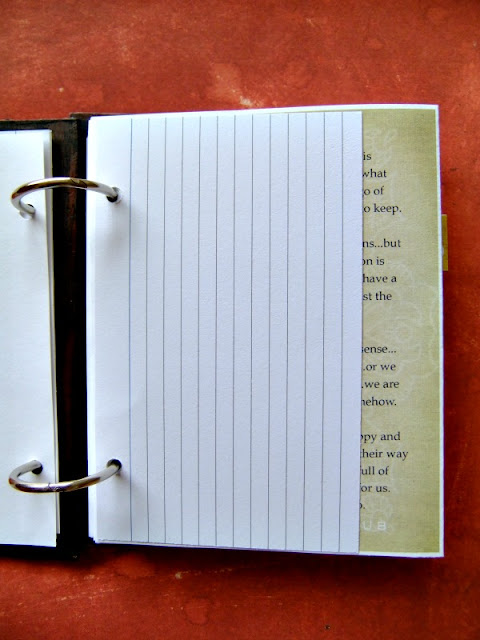 is
what
o of
o keep.
ns...but
on is
have a
st the
sense...
.or we
.we are
ehow.
ppy and
their way
full of
or us.